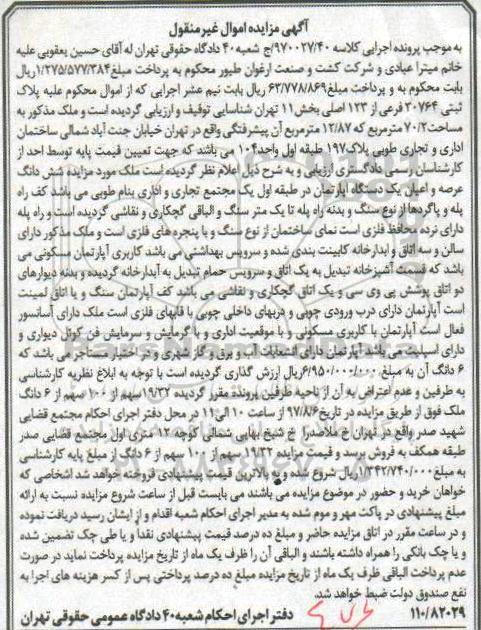 آگهی مزایده اموال غیر منقول
به موجب پرونده اجرایی کلاسه ۹۷۰۰۲۷/۴۰/ج شعبه ۴۰ دادگاه حقوقی تهران له آقای حسین یعقوبی علیه
خانم میترا عبادی و شرکت کشت و صنعت ارغوان طیور محکوم به پرداخت مبلغ ۱/۲۷۵/۵۷۷/۳۸۴ ریال
بابت محکوم به و پرداخت مبلغ ۶۳/۷۷۸/۸۶۹ ریال بابت نیم عشر اجرایی که از اموال محکوم علیه پلاک
ثبتی ۳۰۷۶۴ فرعی از ۱۲۳ اصلی بخش ۱۱ تهران شناسایی توقیف و ارزیابی گردیده است و ملک مذکور به
مساحت ۷۰/۲ مترمربع که ۱۲/۸۷ مترمربع آن پیشرفتگی واقع در تهران خیابان جنت آباد شمالی ساختمان
اداری و تجاری طوبی پلاک ۱۹۷ طبقه اول واحد ۱۰۴ می باشد که جهت تعیین قیمت پایه توسط احد از
کارشناسان رسمی دادگستری ارزیابی و به شرح ذیل اعلام نظر گردیده است ملک مورد مزایده شش دانگ
عرصه و اعیان یک دستگاه آپارتمان در طبقه اول یک مجتمع تجاری و اداری بنام طوبی می باشد کف راه
پله و پاگردها از نوع سنگ و بدنه راه پله تا یک متر سنگ و الباقی گچکاری و نقاشی گردیده است و راه پله
دارای نرده محافظ فلزی است نمای ساختمان از نوع سنگ و با پنجره های فلزی است و ملک مذکور دارای
سالن و سه اتاق و ابدارخانه کابینت بندی شده و سرویس بهداشتی می باشد کاربری آپارتمان مسکونی می
باشد که قسمت آشپزخانه تبدیل به یک اتاق و سرویس حمام تبدیل به آبدارخانه گردیده و بدنه دیوارهای
دو اتاق پوشش پی وی سی و یک اتاق گچکاری و نقاشی می باشد کف آپارتمان سنگ و یا اتاق لمینت
است آپارتمان دارای درب ورودی چوبی و دربهای داخلی چوبی با قابهای فلزی است ملک دارای آسانسور
فعال است آپارتمان با کاربری مسکونی و با موقعیت اداری و با گرمایش و سرمایش فن کوئل دیواری و
دارای اسپلیت می باشد آپارتمان دارای انشعابات آب و برق و گاز شهری و در اختیار مستاجر می باشد که
۶ دانگ آن به مبلغ ۶/۹۵۰/۰۰۰/۰۰۰ ریال ارزش گذاری گردیده است با توجه به ابلاغ نظریه کارشناسی
به طرفین و عدم اعتراض به آن از ناحیه طرفین پرونده مقرر گردیده ۱۹/۳۲ سهم از ۱۰۰ سهم از ۶ دانگ
ملک فوق از طریق مزایده در تاریخ ۹۷/۸/۶ از ساعت ۱۰ الی ۱۱ در محل دفتر اجرای احکام مجتمع قضایی
شهید صدر واقع در تهران خ ملاصدرا خ شیخ بهایی شمالی کوچه ۱۲ متری اول مجتمع قضایی صدر
طبقه همکف به فروش برسد و قیمت مزایده ۱۹/۳۲ سهم از ۱۰۰ سهم از ۶ دانگ از مبلغ پایه کارشناسی
به مبلغ ۱/۳۴۲/۷۴۰/۰۰۰ ریال شروع شده و به بالاترین قیمت پیشنهادی فروخته خواهد شد اشخاصی که
خواهان خرید و حضور در موضوع مزایده می باشند می بایست قبل از ساعت شروع مزایده نسبت به ارائه
مبلغ پیشنهادی در پاکت مهر و موم شده به مدیر اجرای احکام شعبه اقدام و از ایشان رسید دریافت نموده
و در ساعت مقرر در اتاق مزایده حاضر و مبلغ ده درصد قیمت پیشنهادی نقدا و یا طی چک تضمین شده
و یا چک بانکی را همراه داشته باشند و الباقی آن را ظرف یک ماه از تاریخ مزایده پرداخت نماید در صورت
عدم پرداخت الباقی ظرف یک ماه از تاریخ مزایده مبلغ ده درصد پرداختی پس از کسر هزینه های اجرا به
نفع صندوق دولت ضبط خواهد شد.
۱۱۰/۸۲۰۲۹ دفتر اجرای احکام شعبه ۴۰ دادگاه عمومی حقوقی تهران